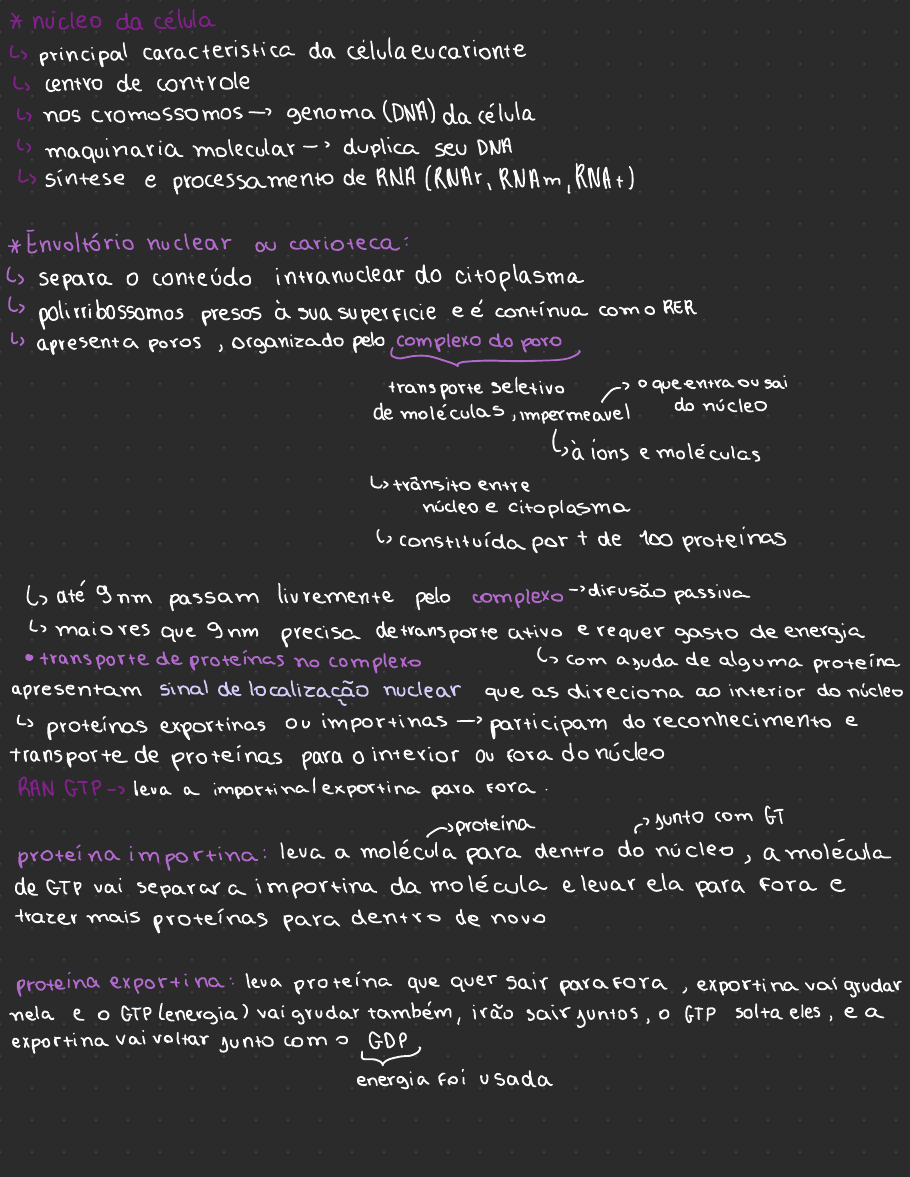 * núcleo da célula
↳ principal caracteristica da célula eucarionte
↳ centro de controle
↳ nos cromossomos → genoma (DNA) da célula
↳ maquinaria molecular → duplica seu DNA
↳ síntese e processamento de RNA (RNAr, RNAm, RNAt)
* Envoltório nuclear ou carioteca:
↳ separa o conteúdo intranuclear do citoplasma
↳ polirribossomos presos à sua superficie e é contínua com o RER
↳ apresenta poros, organizado pelo complexo do poro
transporte seletivo → o que entra ou sai
de moléculas, impermeavel do núcleo
↳ à íons e moléculas
↳ trânsito entre
núcleo e citoplasma
↳ constituída por + de 100 proteínas
↳ até 9nm passam livremente pelo complexo → difusão passiva
↳ maiores que 9nm precisa de transporte ativo e requer gasto de energia
• transporte de proteínas no complexo ↳ com ajuda de alguma proteína
apresentam sinal de localização nuclear que as direciona ao interior do núcleo
↳ proteínas exportinas ou importinas → participam do reconhecimento e
transporte de proteínas para o interior ou fora do núcleo
RAN GTP → leva a importina/exportina para fora.
→ proteína → junto com GT
proteína importina: leva a molécula para dentro do núcleo, a molécula
de GTP vai separar a importina da molécula e levar ela para fora e
trazer mais proteínas para dentro de novo
proteína exportina: leva proteína que quer sair para fora, exportina vai grudar
nela e o GTP (energia) vai grudar também, irão sair juntos, o GTP solta eles, e a
exportina vai voltar junto com o GDP
energia foi usada